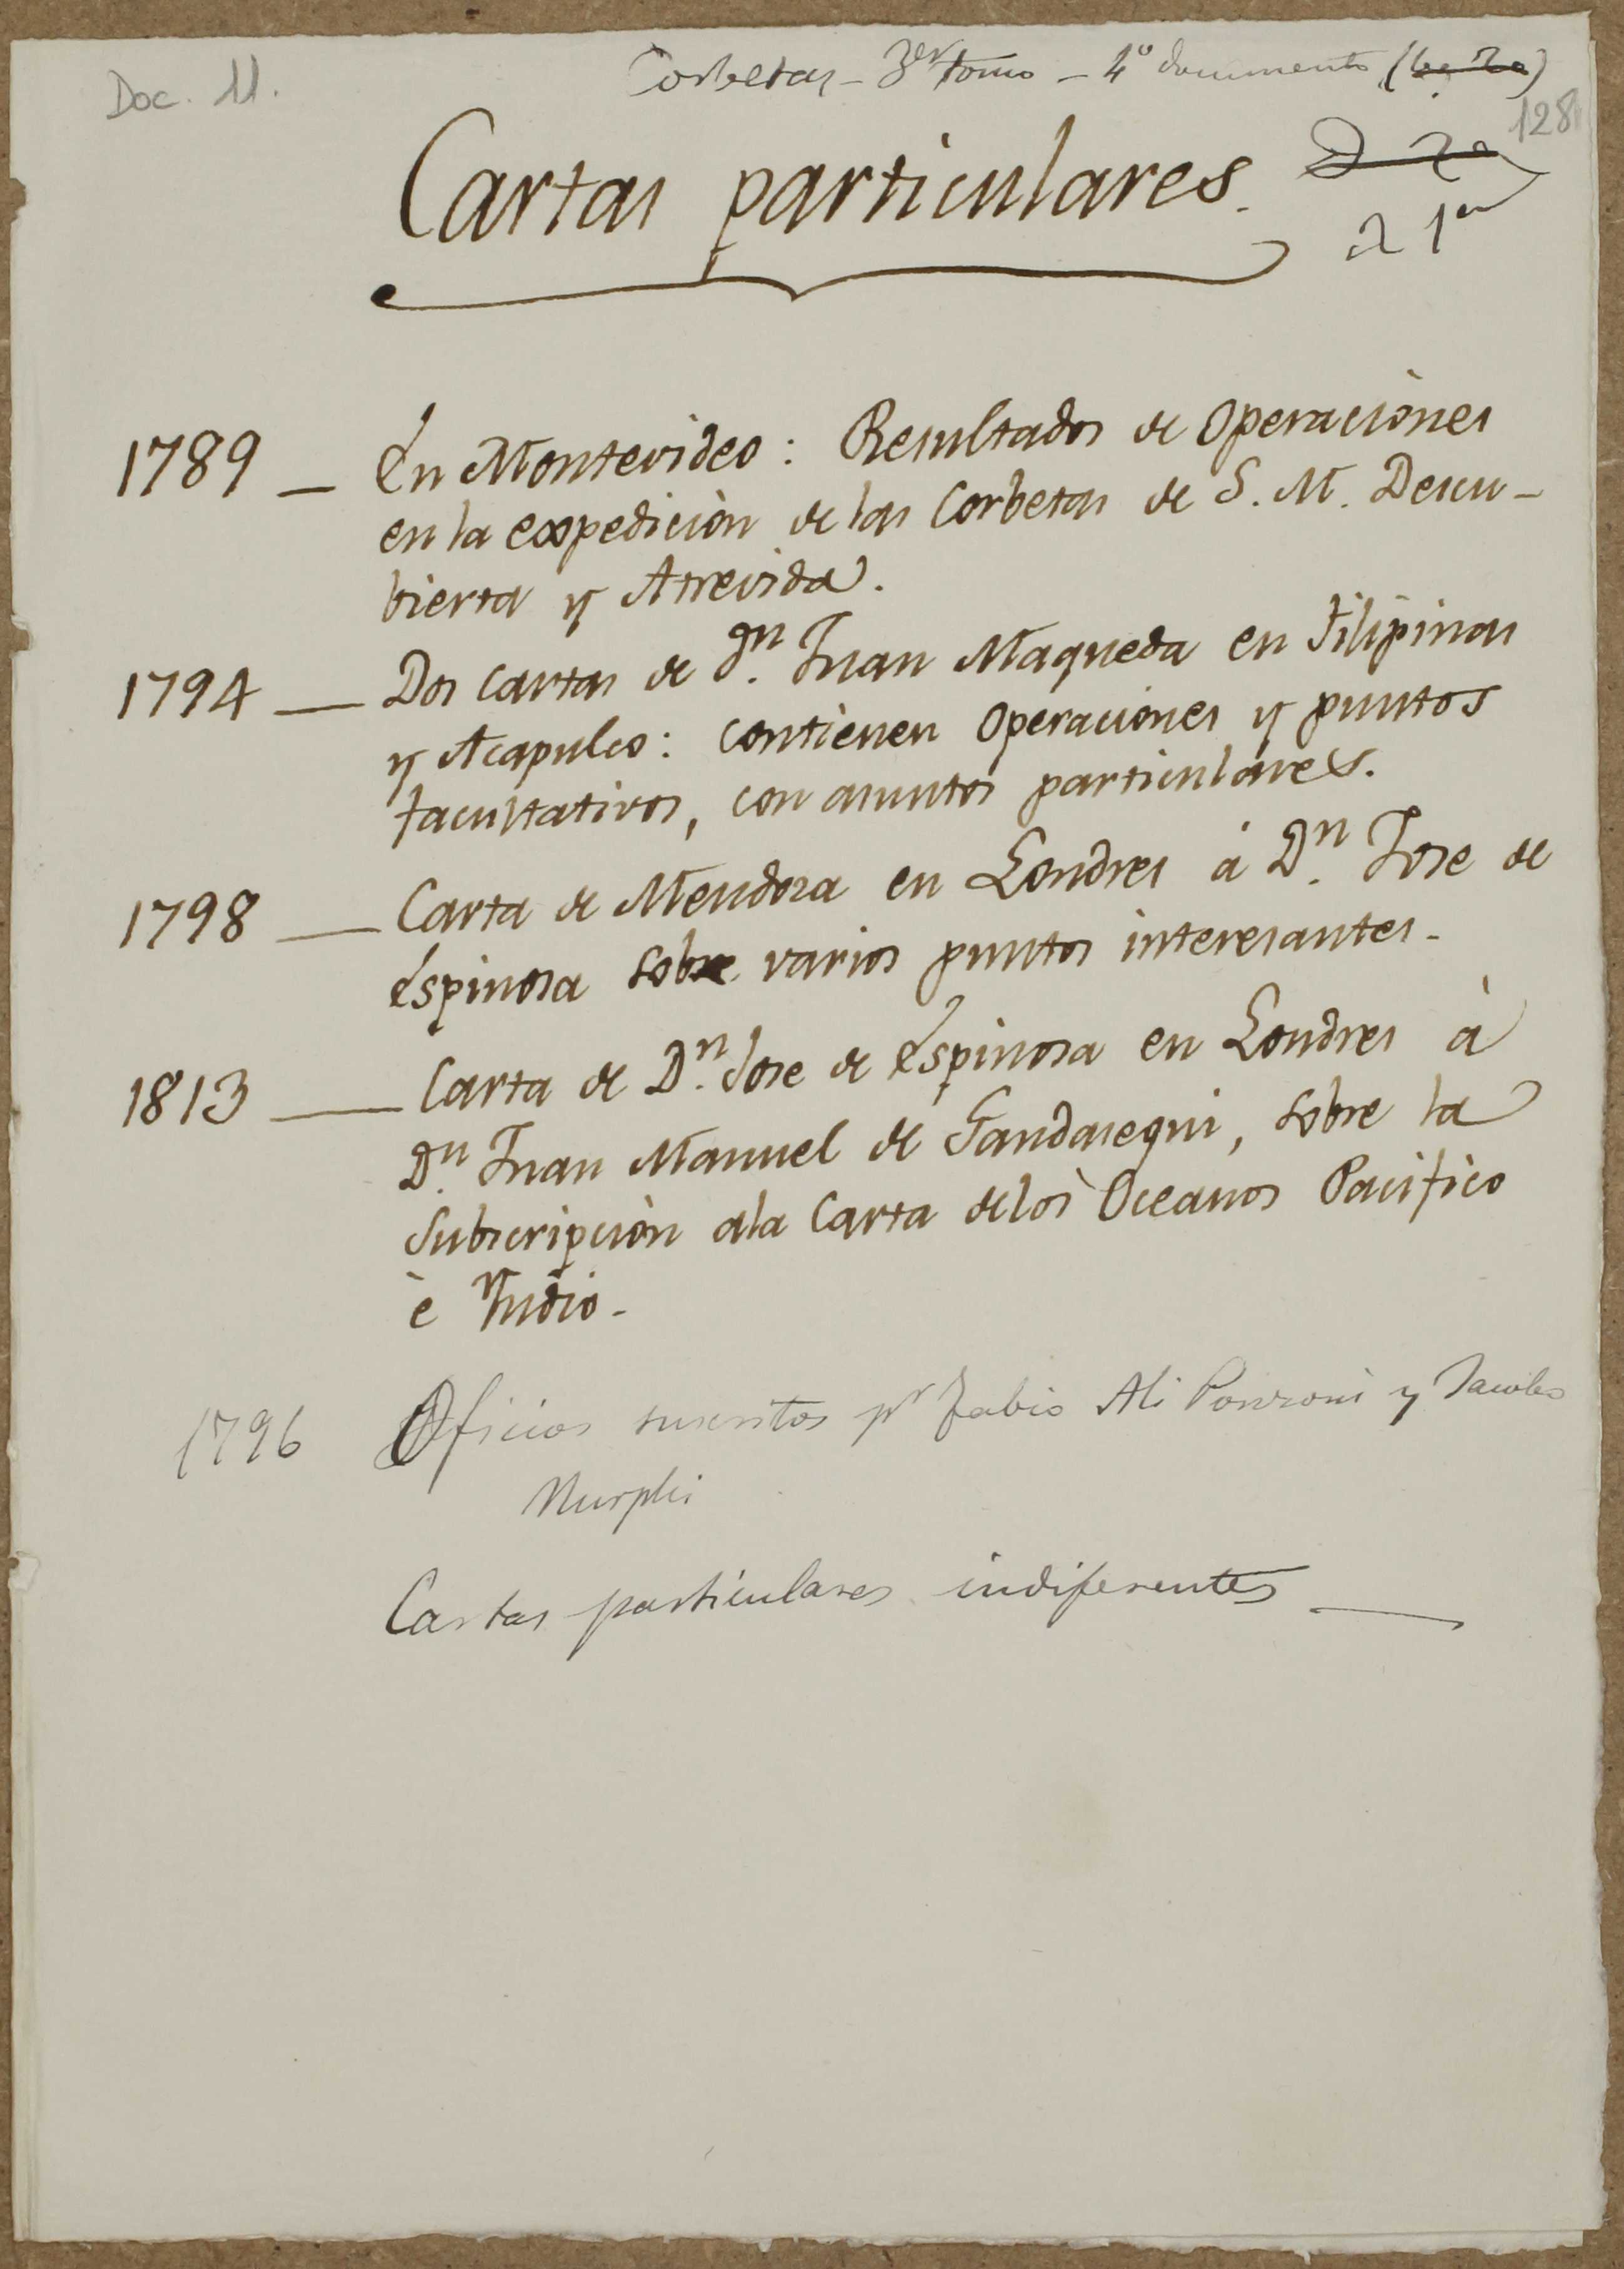 Doc. 11.
Corbetas - 3er tomo - 4º documento
128
Cartas particulares.
1789 — En Montevideo: Resultados de Operaciònes
en la expedicion de las Corbetas de S. M. Descu-
bierta y Atrevida.
1794 — Dos cartas de Dn. Juan Maqueda en Filipinas
y Acapulco: contienen Operaciones y puntos
facultativos, con asuntos particulares.
1798 — Carta de Mendoza en Londres á Dn. Jose de
Espinosa sobre varios puntos interesantes.
1813 — Carta de Dn. Jose de Espinosa en Londres à
Dn. Juan Manuel de Gandasegui, sobre la
Subscripciòn ala Carta delos Oceanos Pacifico
è Yndio.
1796 Oficios suscritos pr Fabio Ali Ponzoni y Jacobo
Murphi
Cartas particulares indiferentes —